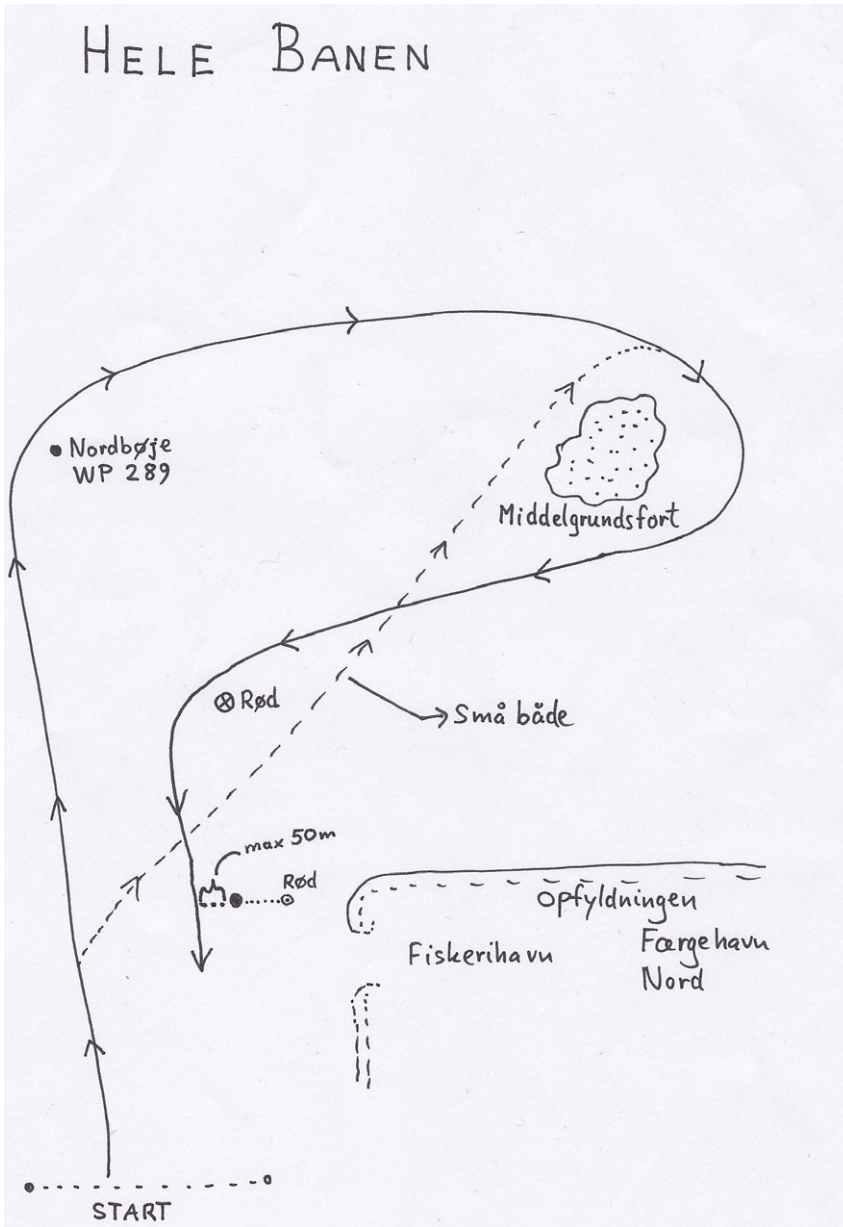 HELE BANEN
Nordbøje
WP 289
Middelgrundsfort
Rød
Små både
max 50m
Rød
Opfyldningen
Færgehavn
Nord
Fiskerihavn
START